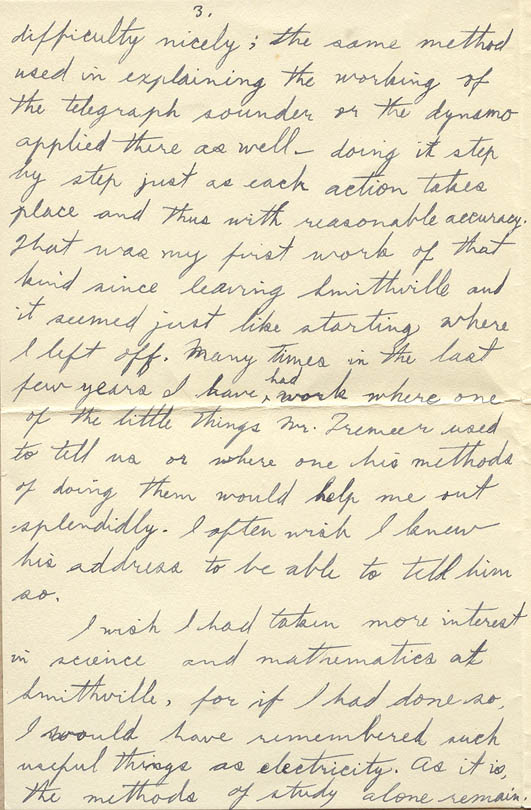 3.
difficulty nicely; the same method
used in explaining the working of
the telegraph sounder or the dynamo
applied there as well - doing it step
by step just as each action takes
place and thus with reasonable accuracy.
That was my first work of that
kind since leaving Smithville and
it seemed just like starting where
I left off. Many times in the last
few years I have had work where one
of the little things Mr. used
to tell us or where one his methods
of doing them would help me out
splendidly. I often wish I knew
his address to be able to tell him
so.
I wish I had taken more interest
in science and mathematics at
Smithville, for if I had done so,
I would have remembered such
useful things as electricity. As it is,
the methods of study alone remain